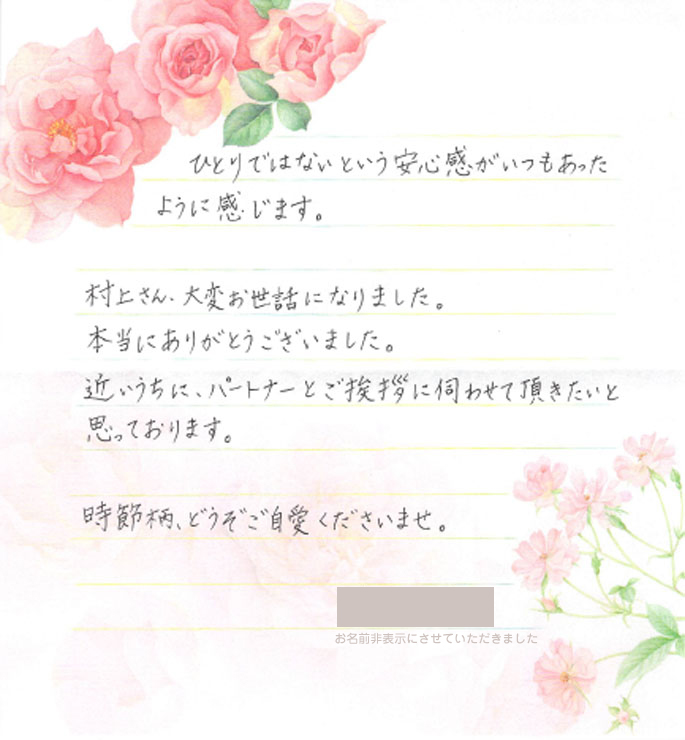 ひとりではないという安心感がいつもあった
ように感じます。
村上さん、大変お世話になりました。
本当にありがとうございました。
近いうちに、パートナーとご挨拶に伺わせて頂きたいと
思っております。
時節柄、どうぞご自愛くださいませ。
お名前非表示にさせていただきました